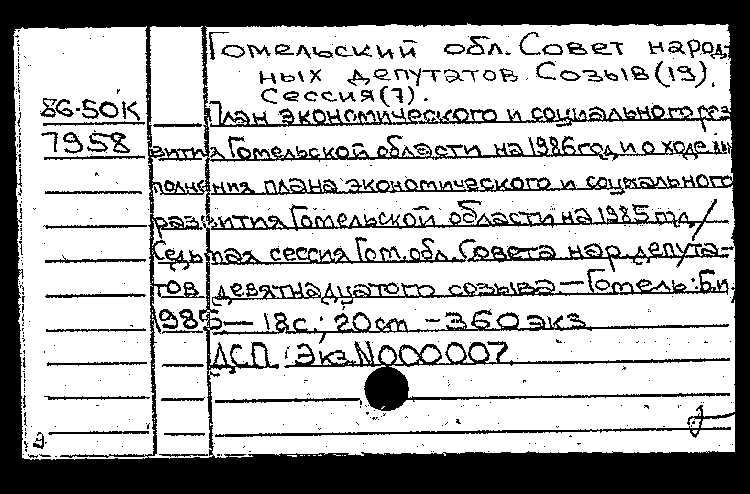 Гомельский обл. Совет народ-
ных депутатов. Созыв (19).
Сессия (7).
86-50К
План экономического и социального раз
7958
вития Гомельской области на 1986 год и о ходе вы
полнения плана экономического и социального
развития Гомельской области на 1985 год /
Седьмая сессия Гом. обл. Совета нар. депута-
тов девятнадцатого созыва — Гомель: Би,
1985 — 18с.; 20 см - 360 экз
ДСП. Экз. N000007